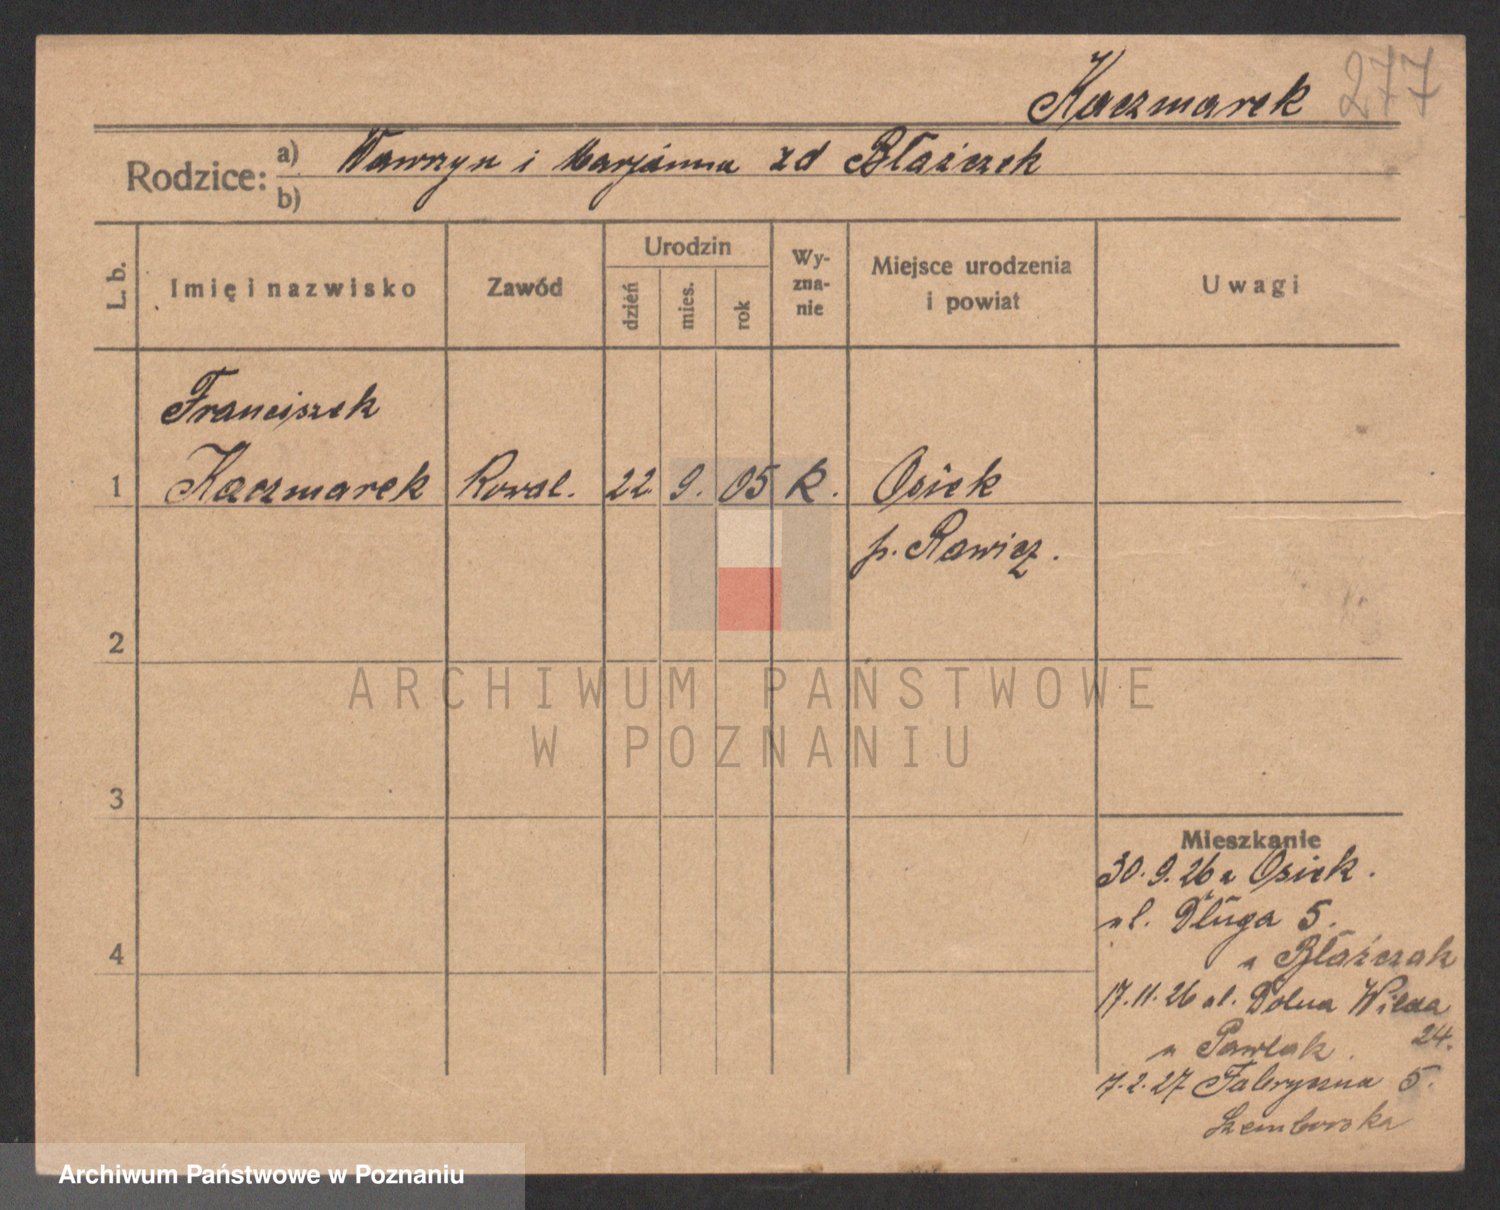 Kaczmarek 277
Rodzice: a) Wawrzyn i Marjanna zd Błażczek
b)
L. b. Imię i nazwisko Zawód Urodzin dzień mies. rok Wy-zna-nie Miejsce urodzenia i powiat Uwagi
Franciszek
1 Kaczmarek Kowal. 22 9. 05 k. Osiek
p. Rawicz.
2
ARCHIWUM PAŃSTWOWE
W POZNANIU
3
Mieszkanie
30.9.26 z Osiek.
ul. Długa 5.
4
u Błażczak
17.11.26 ul. Dolna Wilda
24.
u Pawlak.
7.2.27 Fabryczna 5.
Szemborska
Archiwum Państwowe w Poznaniu